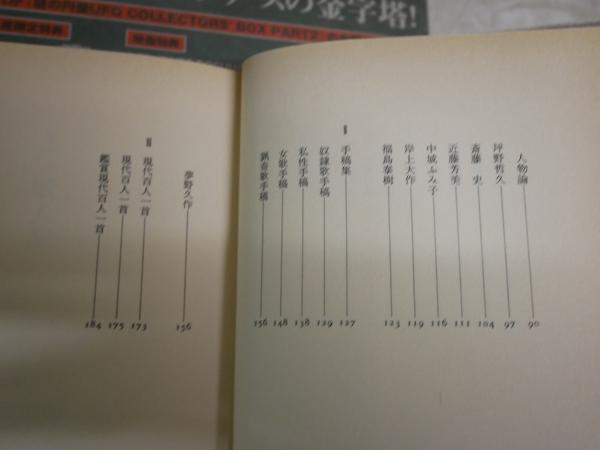 謎の円盤UFO COLLECTORS' BOX PART2
ーズの金字塔!
映像特典
人物論 90
坪野哲久 97
斎藤 史 104
近藤芳美 111
中城ふみ子 116
岸上大作 119
福島泰樹 123
II
手稿集 127
奴隷歌手稿 129
私性手稿 138
女歌手稿 148
猟奇歌手稿 156
夢野久作 156
III
現代百人一首 173
現代百人一首 175
鑑賞現代百人一首 184